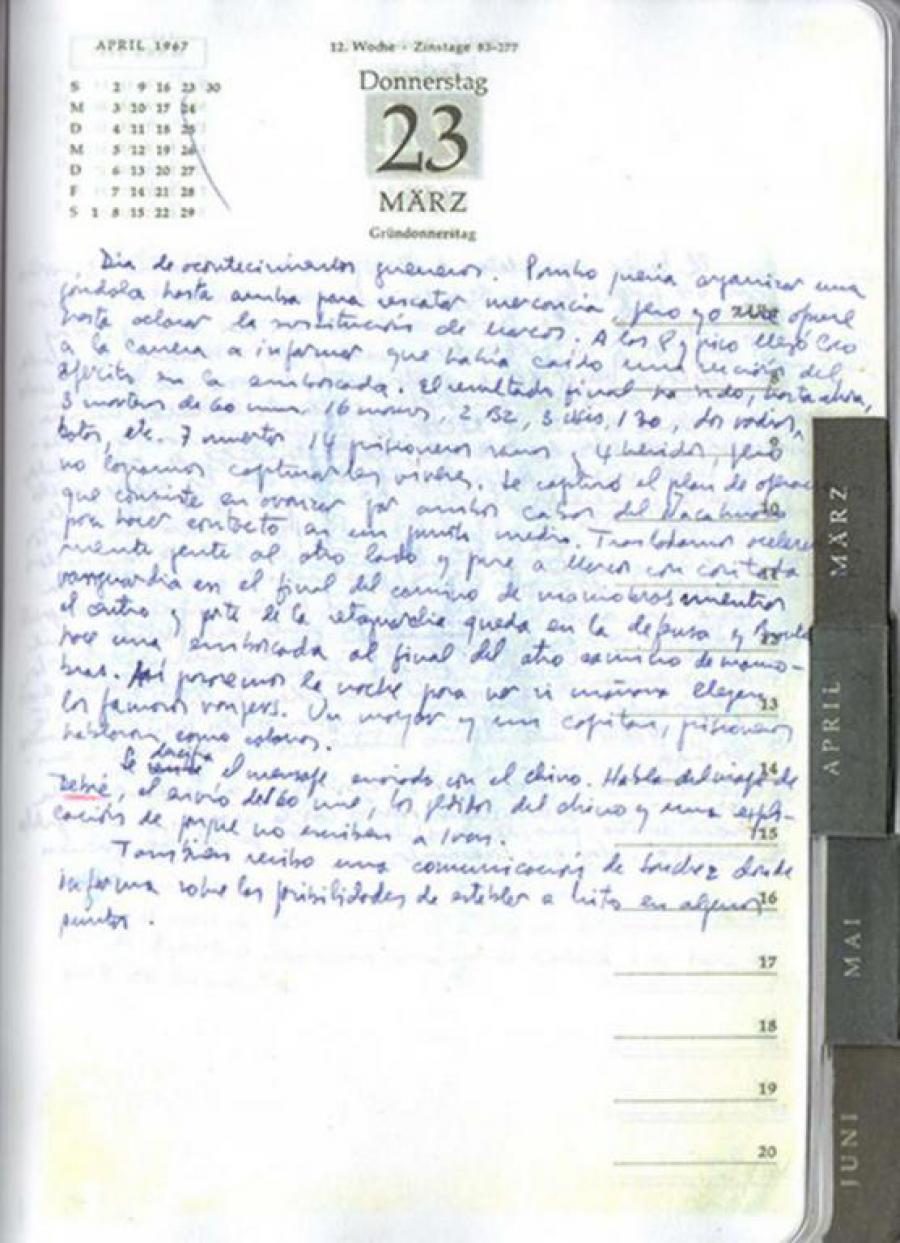 APRIL 1967
S 2 9 16 23 30
M 3 10 17 24
D 4 11 18 25
M 5 12 19 26
D 6 13 20 27
F 7 14 21 28
S 1 8 15 22 29
12. Woche · Zinstage 83-277
Donnerstag
23
MÄRZ
Gründonnerstag
Dia de acontecimientos guerreros. Pombo quería organizar una
góndola hasta arriba para rescatar mercancía, pero yo me opuse
hasta aclarar la sustitución de Marcos. A las 8 y pico llegó Coco
a la carrera a informar que había caído una sección del
ejército en la emboscada. El resultado final ha sido, hasta ahora,
3 morteros de 60 mm. 16 mausers, 2 BZ, 3 Usis, 1 30, dos radios,
botas, etc. 7 muertos 14 prisioneros sanos y 4 heridos, pero
no logramos capturarles víveres. Se capturó el plan de operac
que consiste en avanzar por ambos cabos del Ñacahuasu
para hacer contacto en un punto medio. Trasladamos acelera
mente gente al otro lado y puse a Marcos con casi toda
vanguardia en el final del camino de maniobras mientras
el centro y parte de la retaguardia queda en la defensa y Braulio
hace una emboscada al final del otro camino de manio-
bras. Así pasaremos la noche para ver si mañana llegan
los famosos rangers. Un mayor y un capitán, prisioneros
hablaron como cotorras.
Se descifra el mensaje enviado con el chino. Habla del viaje de
Debré, el envío de 60 mil, los pedidos del chino y una expli-
cación de porque no escriben a Ivan.
También recibo una comunicación de Sanchez donde
informa sobre las posibilidades de establecer a Mito en algunos
puntos.
8
9
10
11
12
13
14
15
16
17
18
19
20
MÄRZ
APRIL
MAI
JUNI